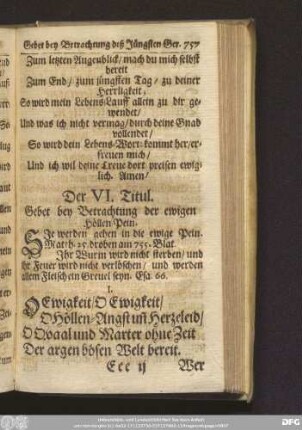 Gebet bey Betrachtung deß Jüngsten Ger. 757
Zum letzten Augenblick/ mach du mich selbst
bereit
Zum End/ zum jüngsten Tag/ zu deiner
Herrligkeit,
So wird mein Lebens-Lauff allein zu dir ge-
wendet/
Und was ich nicht vermag/ durch deine Gnad
vollendet/
So wird dein Lebens-Wort kommt her/ er-
freuen mich/
Und ich wil deine Treue dort preisen ewig-
lich. Amen/
Der VI. Titul.
Gebet bey Betrachtung der ewigen
Höllen Pein.
SIe werden gehen in die ewige Pein.
Matth. 25. droben am 755. Blat.
Ihr Wurm wird nicht sterben/ und
ihr Feuer wird nicht verlöschen/ und werden
allem Fleisch ein Greuel seyn. Esa. 66.
I.
O Ewigkeit/ O Ewigkeit/
O Höllen-Angst uñ Hertzeleid/
O Qvaal und Marter ohne Zeit
Der argen bösen Welt bereit.
Ecc ij Wer